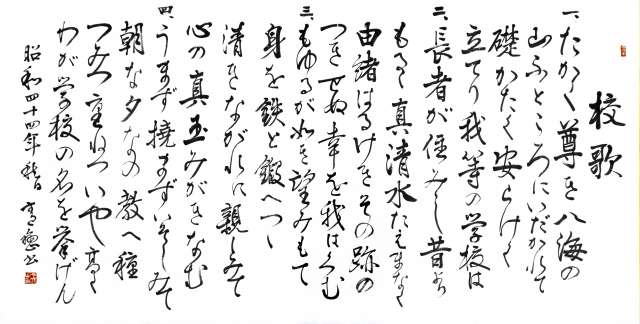 校歌
一、たかく尊き八海の
山ふところにいだかれて
礎かたく安らけく
立てり我等の学校は
二、長者が住みし昔より
もるゝ真清水たえまなく
由緒はるけきその跡の
つきせぬ幸を我はくむ
三、もゆるが如き望みもて
身を鉄と鍛へつゝ
清きながれに親しみて
心の真玉みがきなむ
四、うまず撓まずいそしみて
朝な夕なの教へ種
つみつ重ねついや高く
わが学校の名を挙げん
昭和四十四年秋日
書